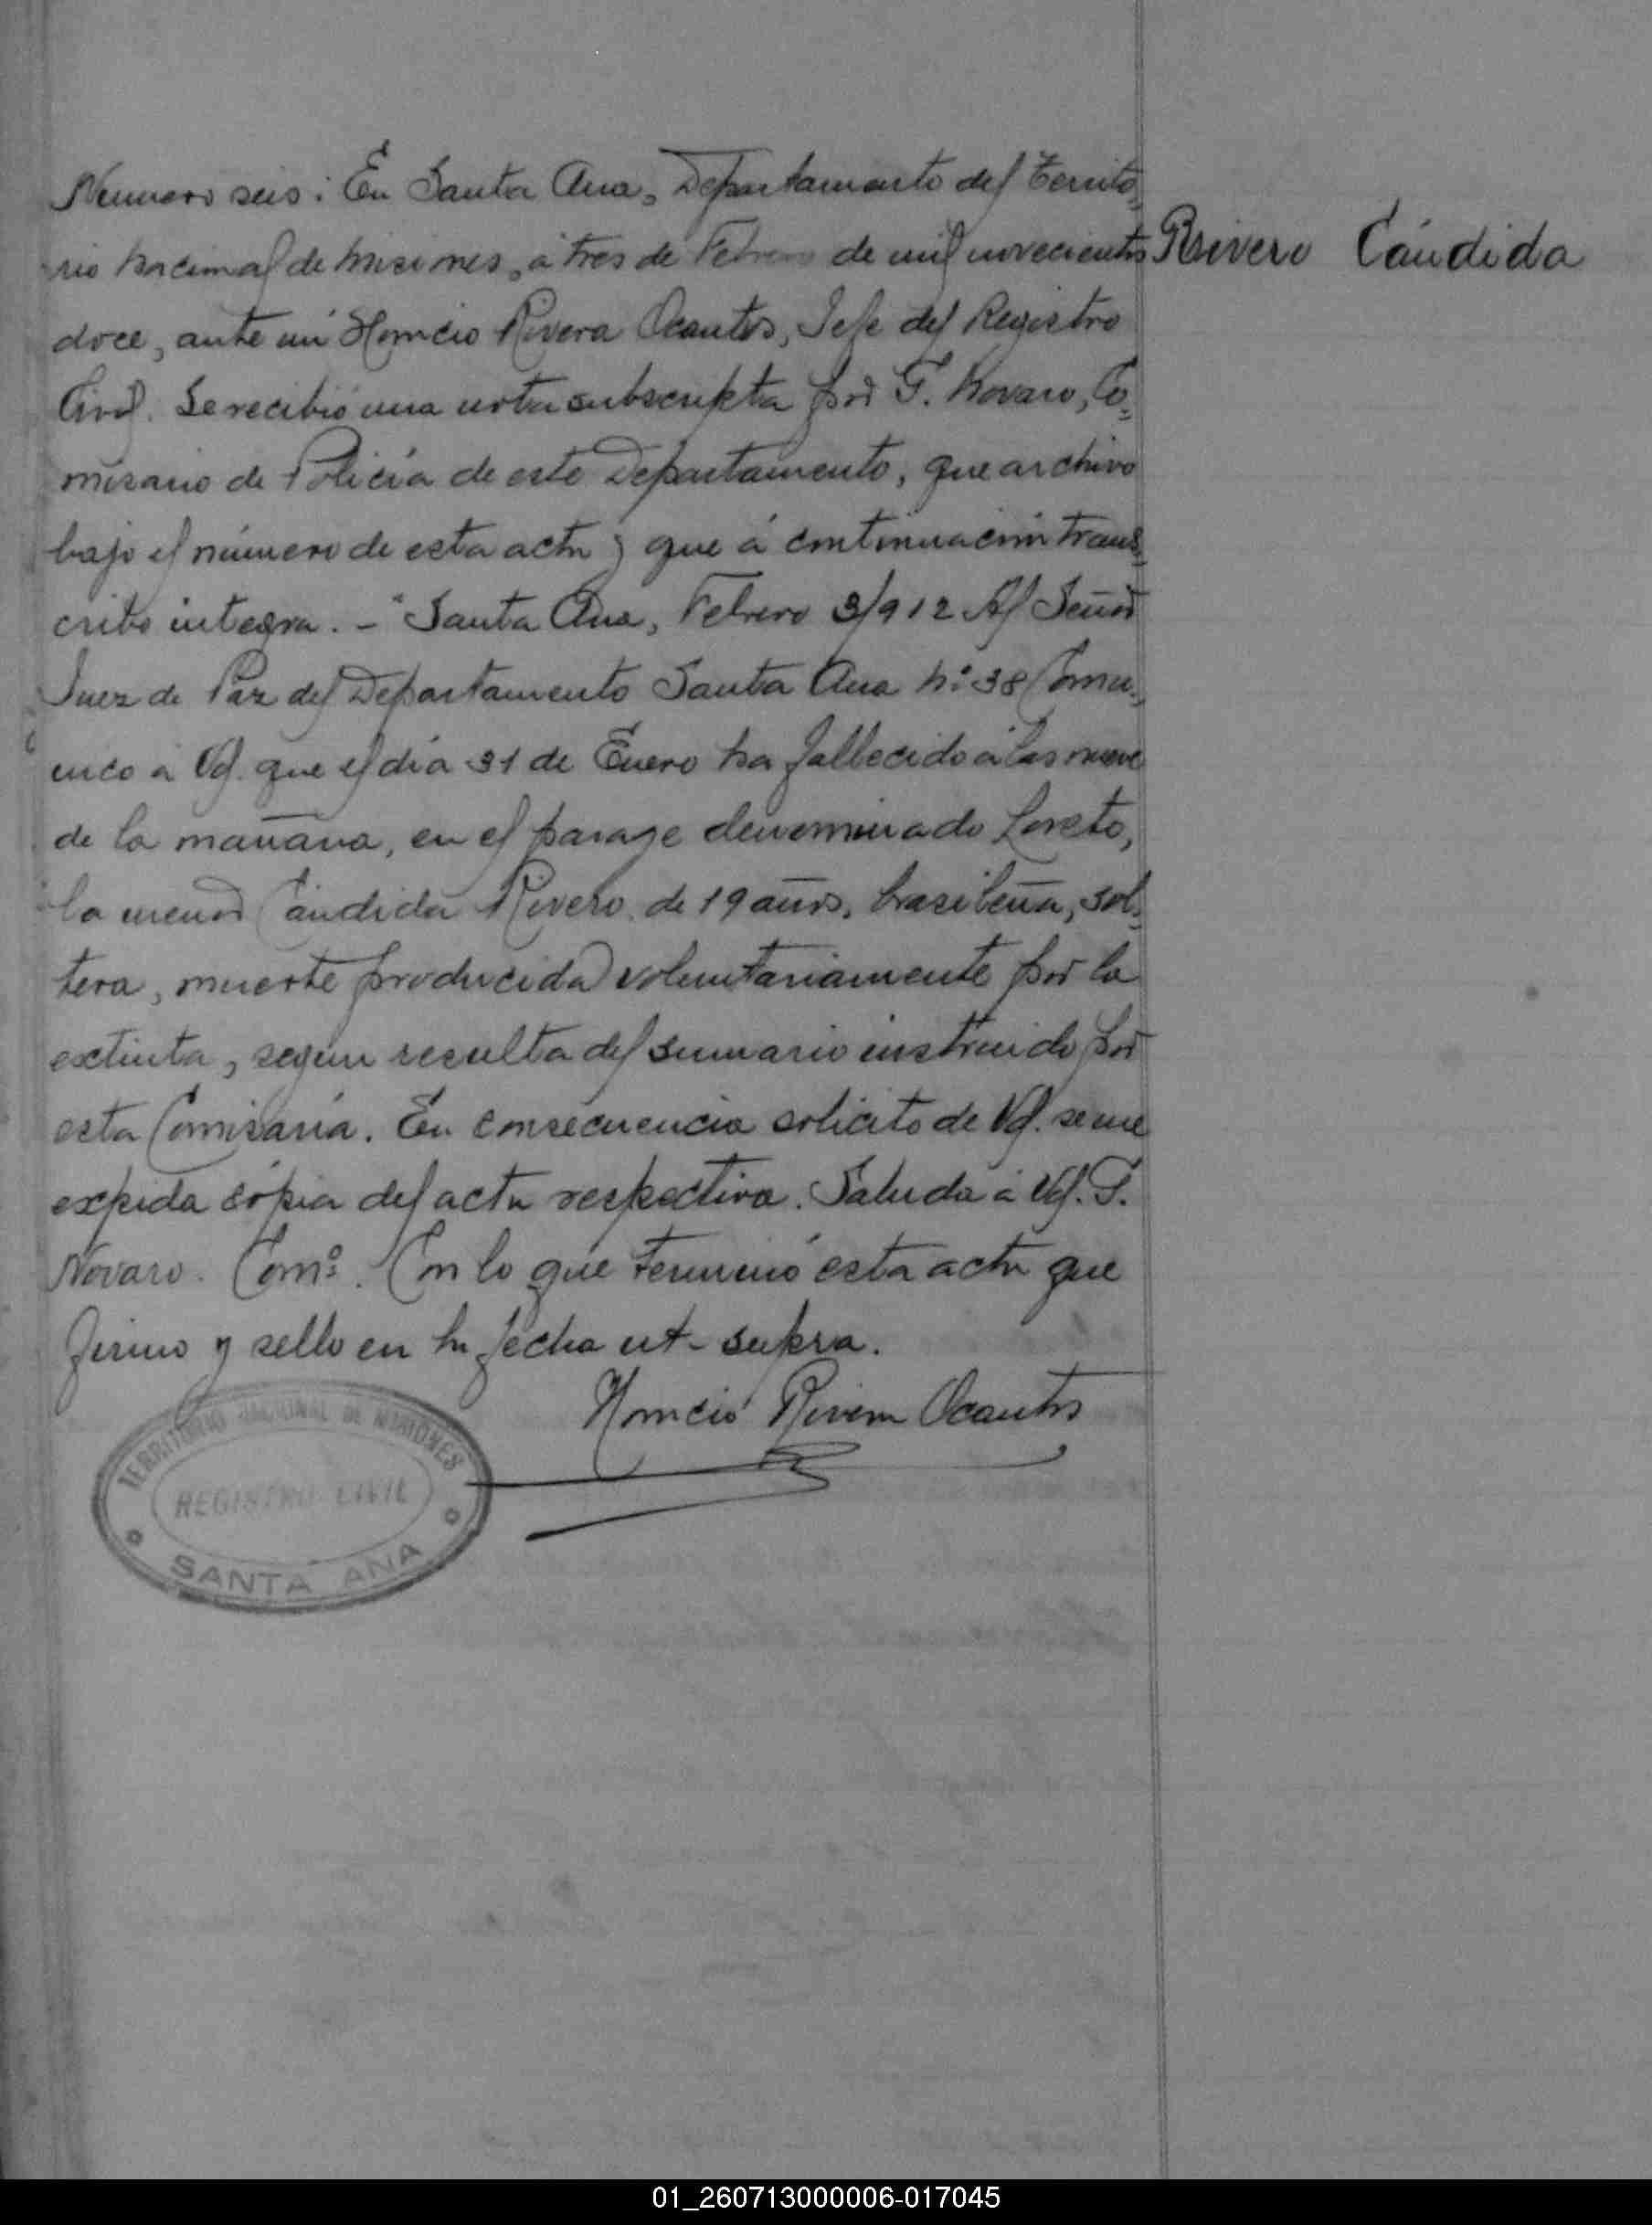 Numero seis: En Santa Ana, Departamento del Territo=
rio Nacional de Misiones, á tres de Febrero de mil novecientos
doce, ante mi Horacio Rivera Ocantos, Jefe del Registro
Civil. Se recibió una nota subscripta por G. Novaro, Co=
misario de Policía de este Departamento, que archivo
bajo el número de esta acta y que á continuación trans=
cribo integra. - "Santa Ana, Febrero 3/912 Al Señor
Juez de Paz del Departamento Santa Ana Nº 38 Comu=
nico a Vd. que el día 31 de Enero ha fallecido á las nueve
de la mañana, en el paraje denominado Loreto,
la menor Cándida Rivero de 19 años, brasileña, sol=
tera, muerte producida voluntariamente por la
extinta, segun resulta del sumario instruido por
esta Comisaría. En consecuencia solicito de Vd. se me
expida cópia del acta respectiva. Saluda á Vd. G.
Novaro. Comº. Con lo que terminó esta acta que
firmo y sello en la fecha ut-supra.
Horacio Rivera Ocantos
Rivero Cándida
TERRITORIO NACIONAL DE MISIONES
REGISTRO CIVIL
SANTA ANA
01_260713000006-017045